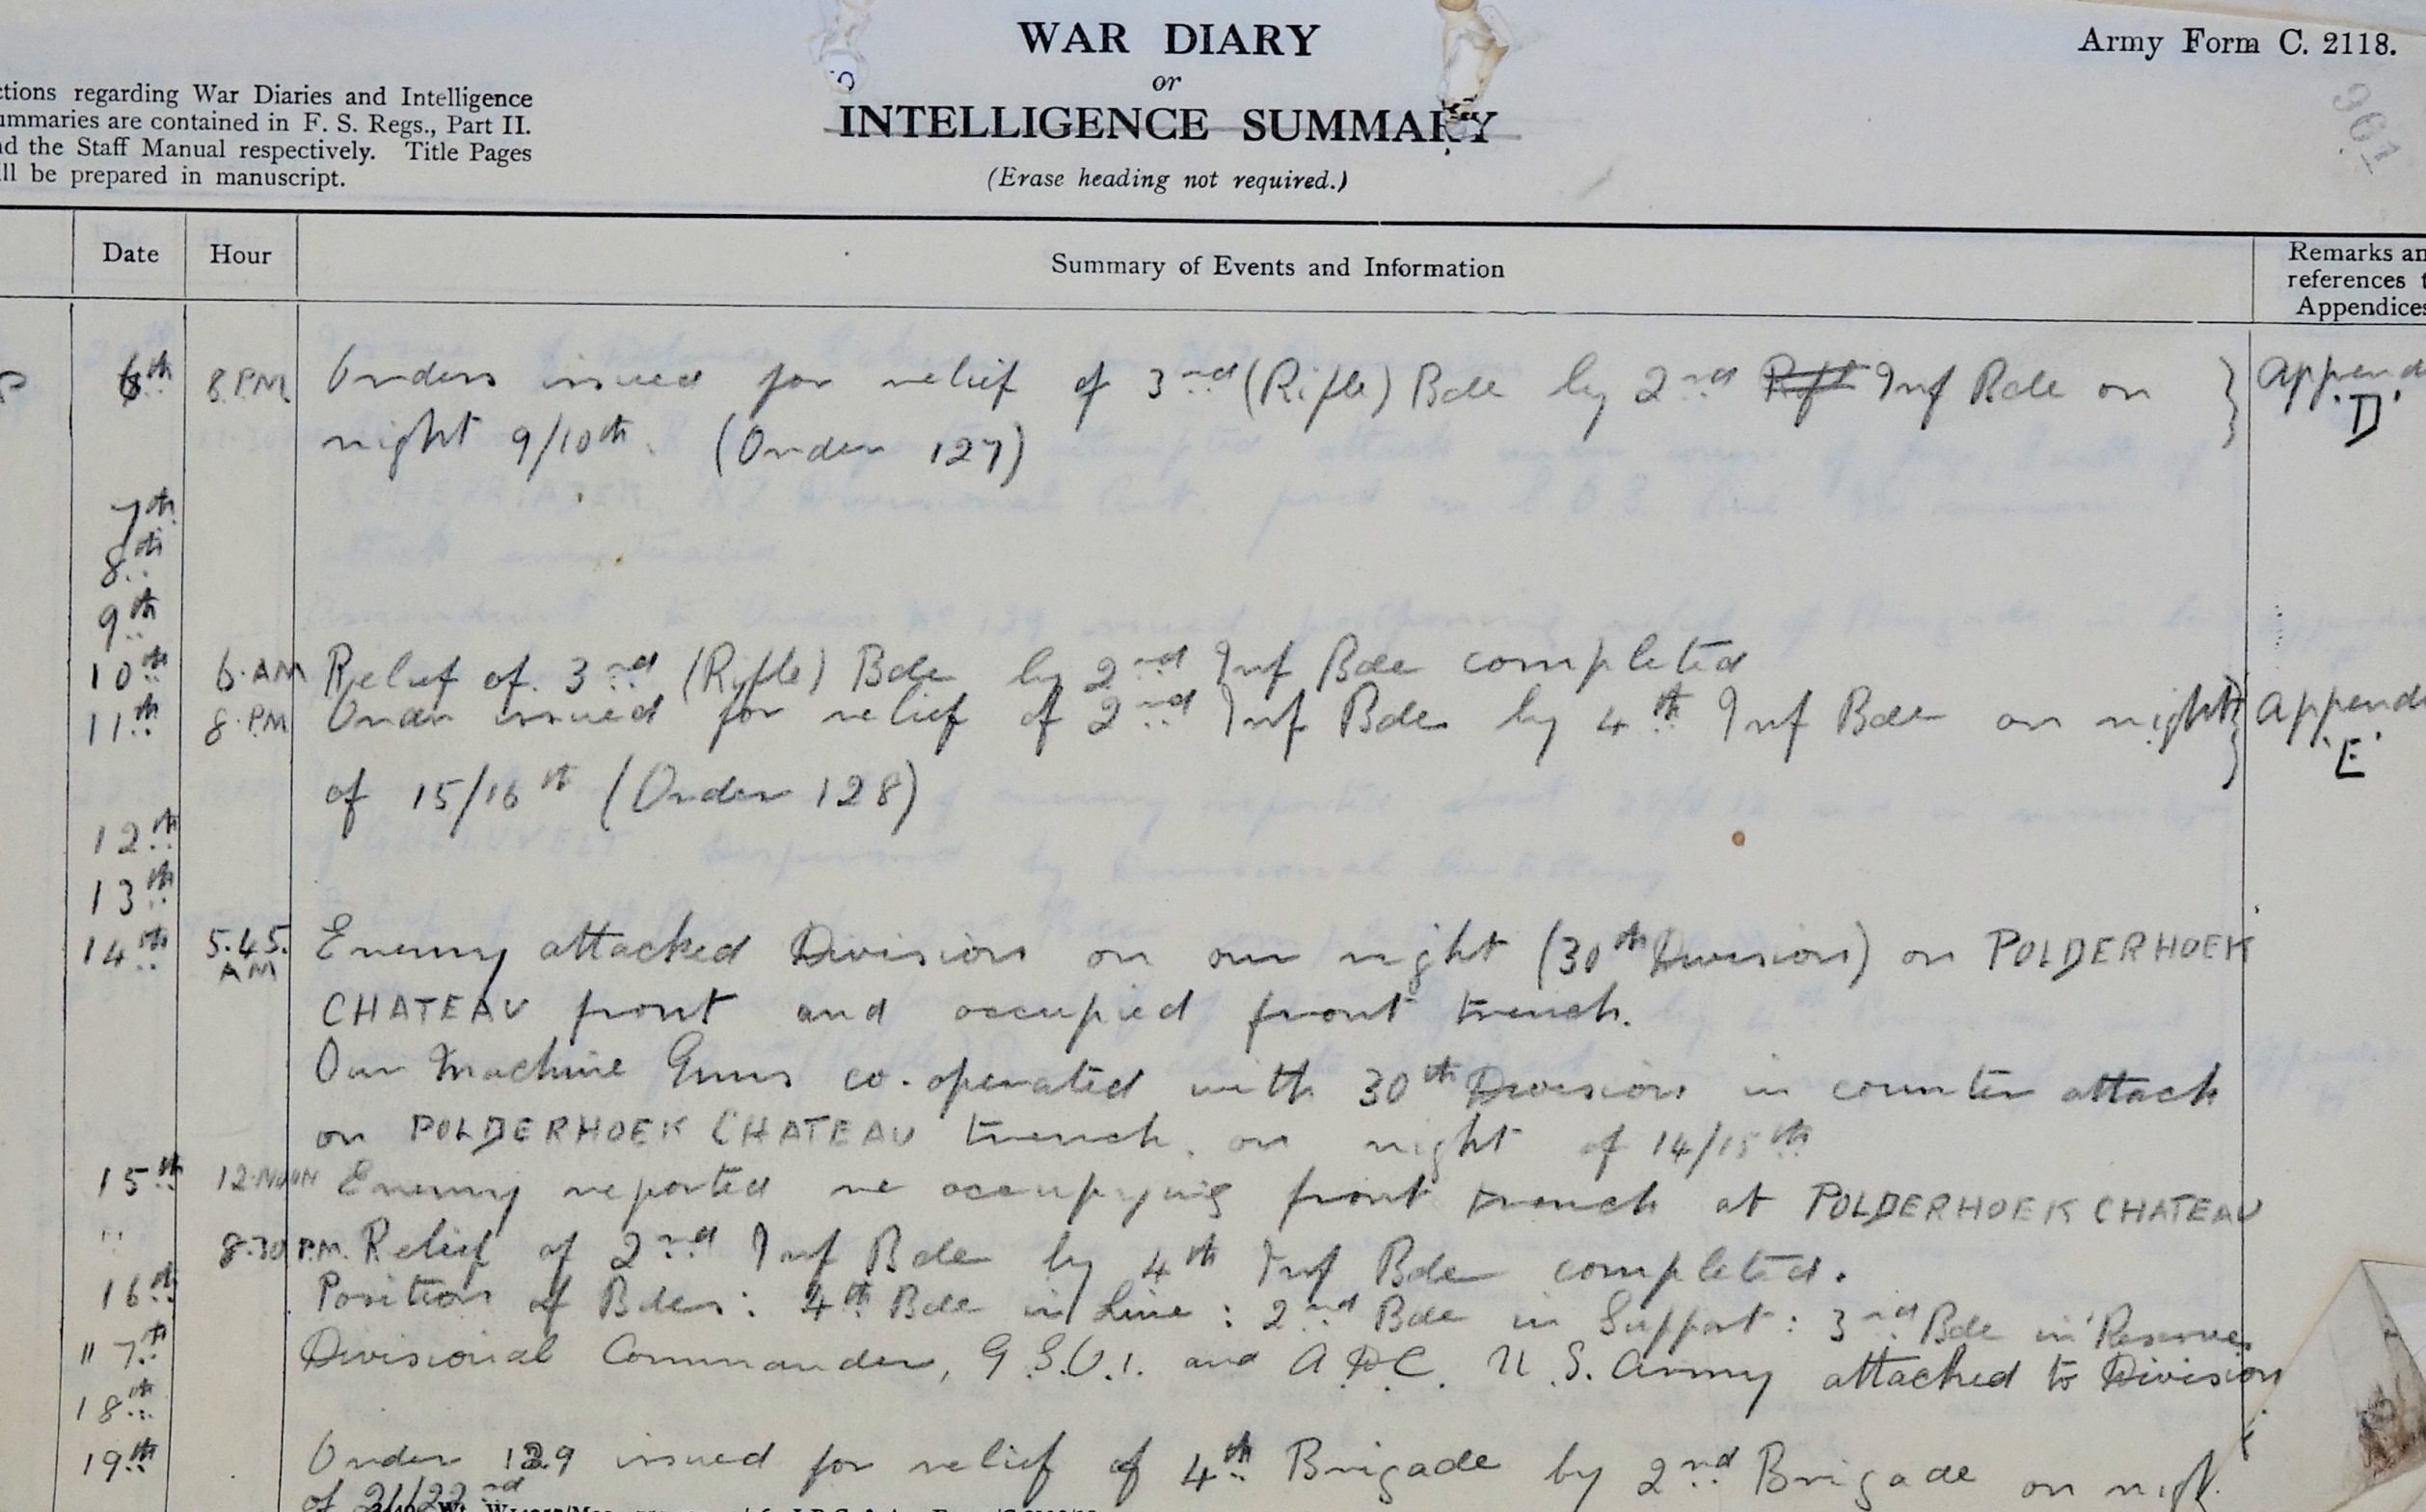 WAR DIARY
or
INTELLIGENCE SUMMARY
(Erase heading not required.)
Army Form C. 2118.
961
ctions regarding War Diaries and Intelligence
ummaries are contained in F. S. Regs., Part II.
nd the Staff Manual respectively. Title Pages
ill be prepared in manuscript.
Date Hour Summary of Events and Information Remarks an
references t
Appendices
6th 8.PM Orders issued for relief of 3rd (Rifle) Bde by 2nd Inf Bde on } Append
night 9/10th. (Order 127) 'D'
7th
8th
9th
10th 6.AM Relief of 3rd (Rifle) Bde by 2nd Inf Bde completed
11th 8.PM Order issued for relief of 2nd Inf Bde by 4th Inf Bde on night } Append
of 15/16th (Order 128) 'E'
12th
13th
14th 5.45. AM Enemy attacked Division on our right (30th Division) on POLDERHOEK
CHATEAU front and occupied front trench.
Our Machine Guns co-operated with 30th Division in counter attack
on POLDERHOEK CHATEAU trench on night of 14/15th
15th 12.NOON Enemy reported re occupying front trench at POLDERHOEK CHATEAU
" 8.30 P.M. Relief of 2nd Inf Bde by 4th Inf Bde completed.
16th Position of Bdes: 4th Bde in Line: 2nd Bde in Support: 3rd Bde in Reserve.
" 7th Divisional Commander, G.S.O.1. and A.D.C. U.S. Army attached to Division
18th
19th Order 129 issued for relief of 4th Brigade by 2nd Brigade on nigh
of 21/22nd